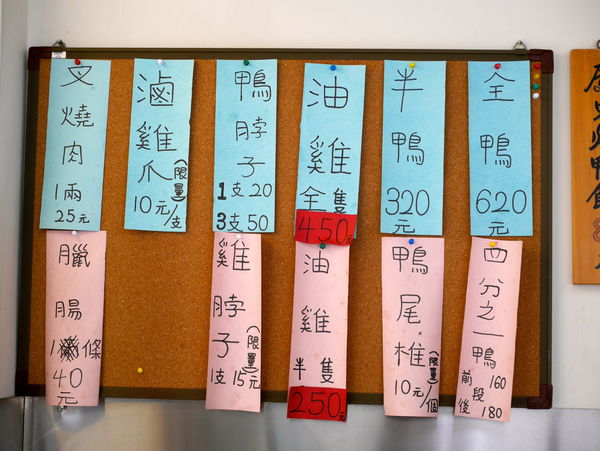 全鴨
620
元
半鴨
320
元
油雞
全隻
450元
鴨脖子
1支20
3支50
滷雞爪
(限量)
10元/支
叉燒肉
1兩
25元
四分之一鴨
前段160
後段180
鴨尾椎
(限量)
10元/個
油雞
半隻
250元
雞脖子
(限量)
1支15元
臘腸
1條
40元